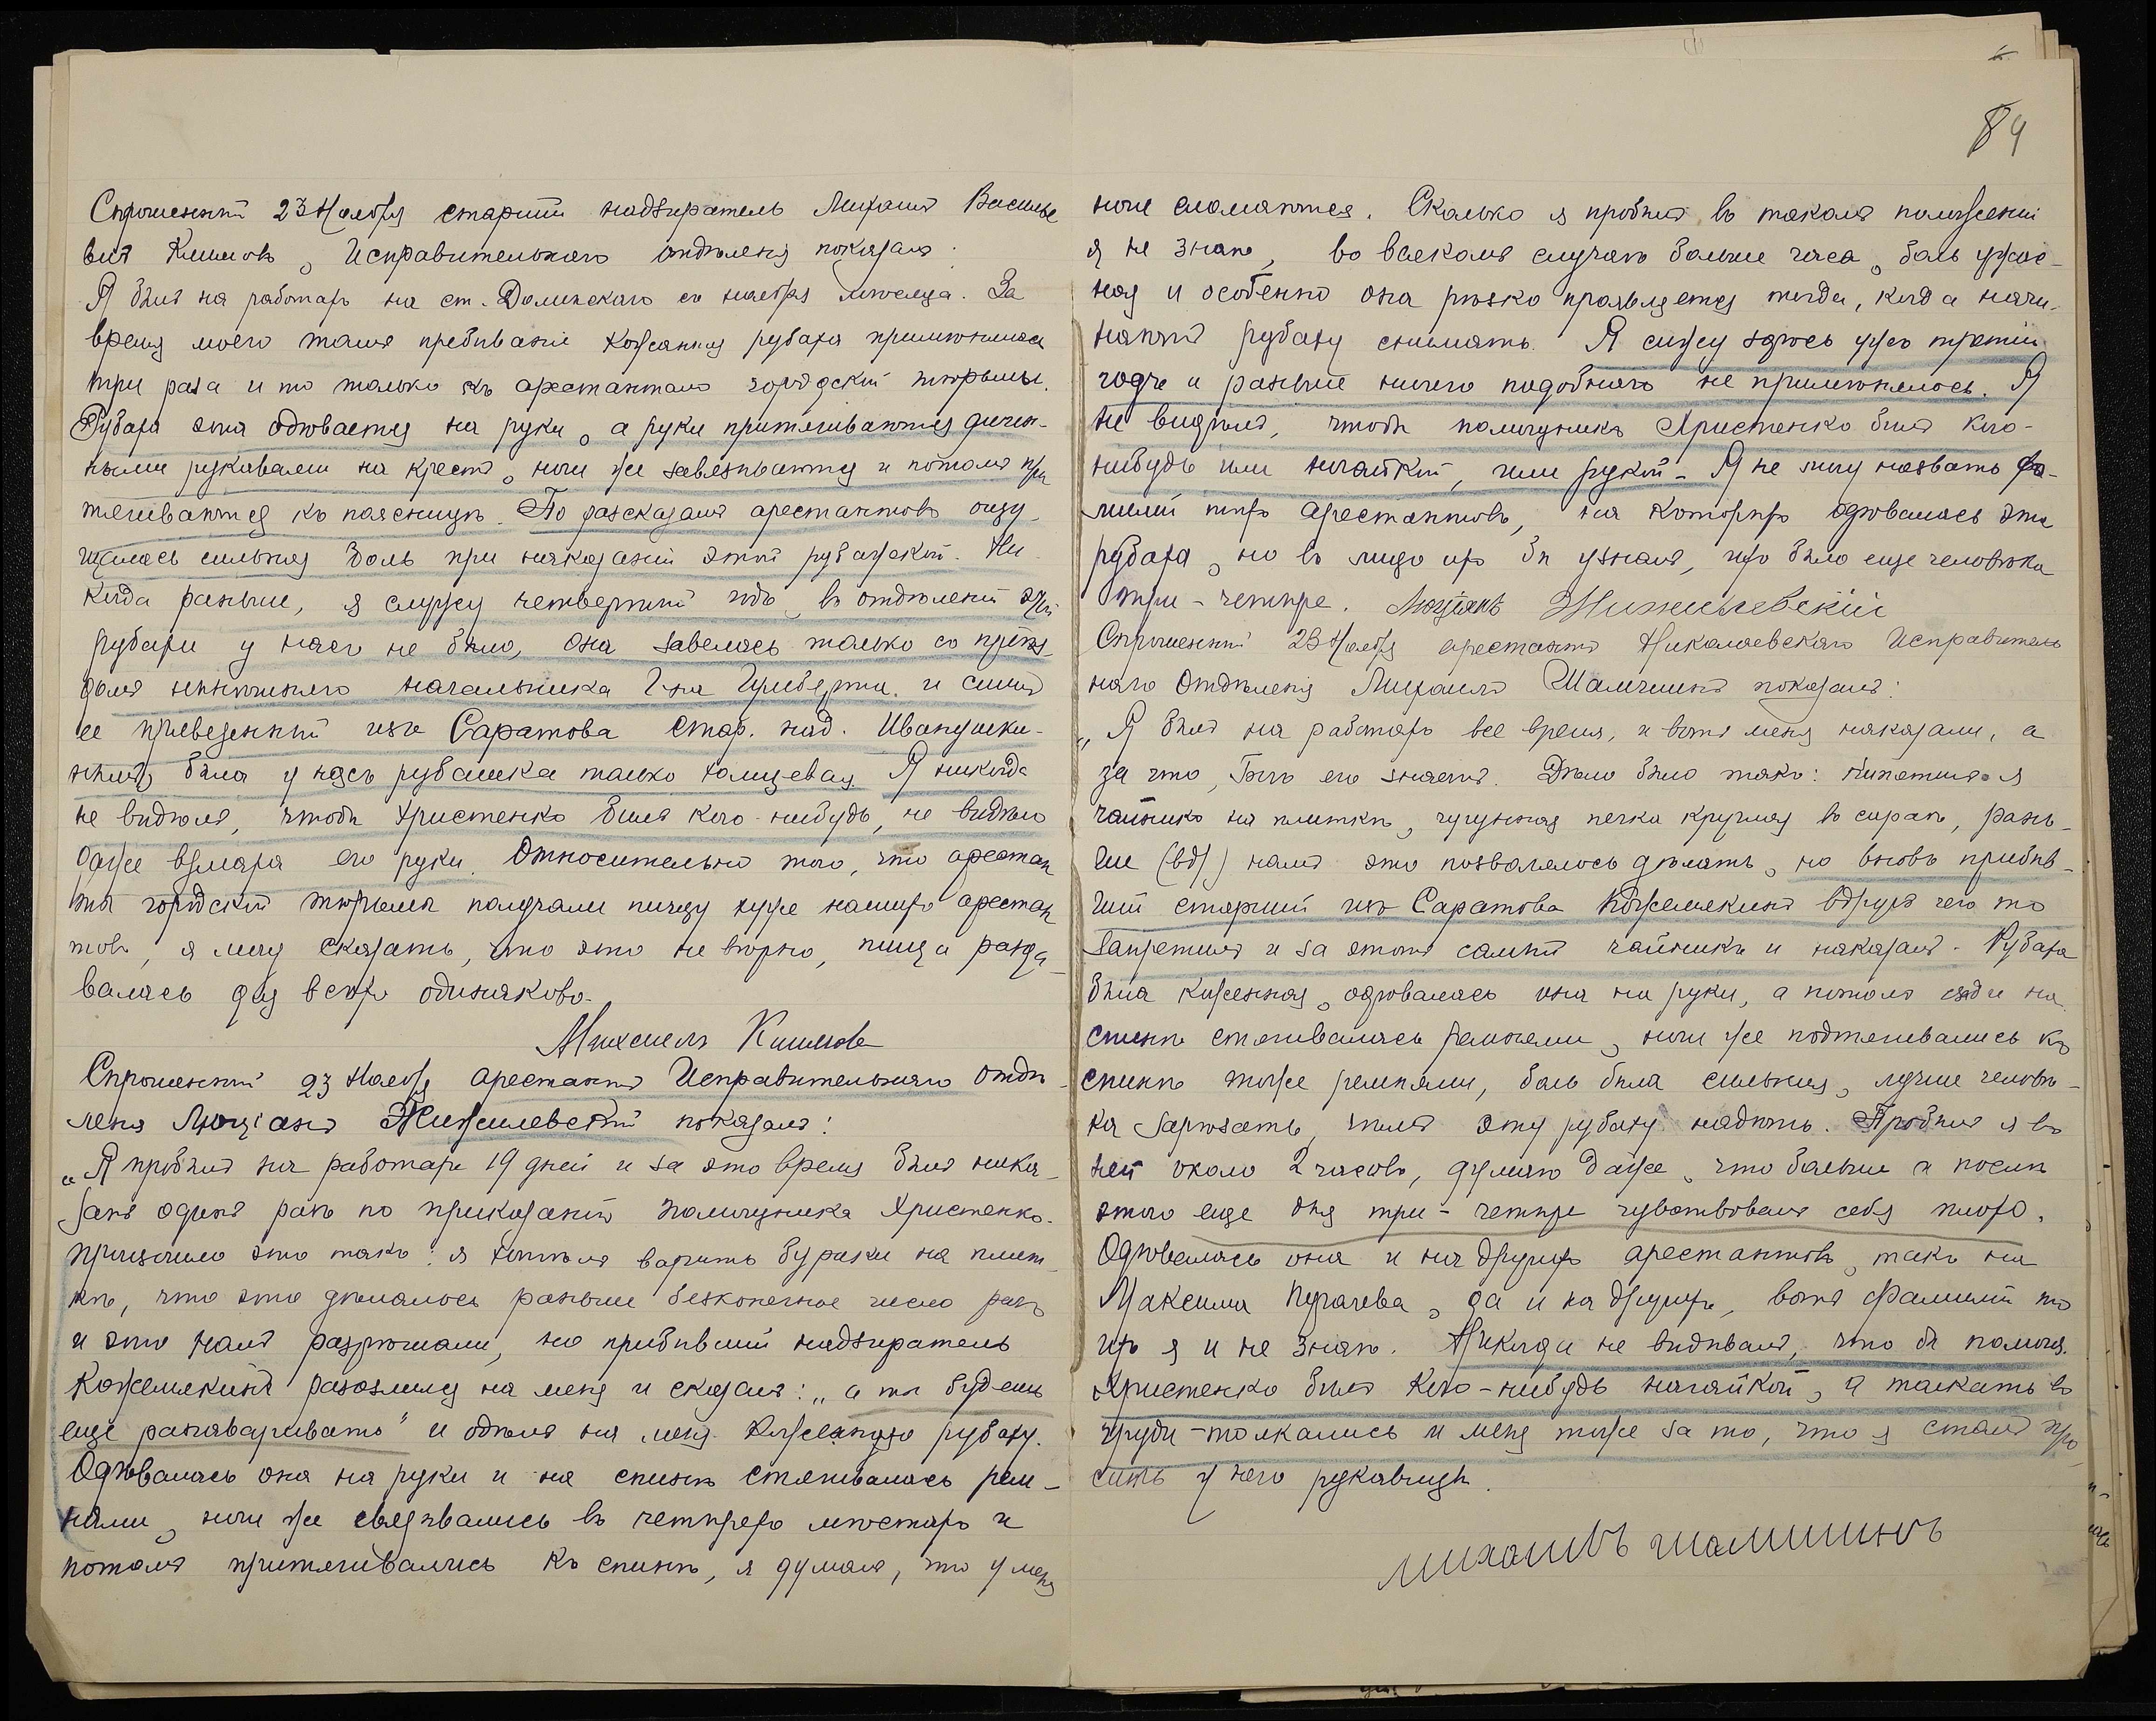 84
Спрошенный 23 Ноября старший надзиратель Михаилъ Василье
вичъ Климовъ, Исправительнаго отдѣленія показалъ:
Я былъ на работахъ на ст. Долинскаго съ ноября мѣсяца. За
время моего тамъ пребыванія кожанная рубаха примѣнялась
три раза и то только къ арестантамъ городской тюрьмы.
Рубаха эта одѣвается на руки, а руки притягиваются длин-
ными рукавами на крестъ, ноги же завязываются и потомъ при
тягиваются къ поясницѣ. По разсказамъ арестантовъ ощу-
щалась сильная боль при наказаніи этой рубашкой. Ни-
когда раньше, я служу четвертый годъ, въ отдѣленіи этой
рубахи у насъ не было, она завелась только съ пріѣз-
домъ нынѣшняго начальника Г-на и сшилъ
ее привезенный изъ Саратова стар. над. Иванушки-
нымъ, была у насъ рубашка только холщевая. Я никогда
не видѣлъ, чтобы Христенко билъ кого-нибудь, не видѣлъ
даже взмаха его руки. Относительно того, что арестан
ты городской тюрьмы получали пищу хуже нашихъ арестан
товъ, я могу сказать, что это не вѣрно, пища разда-
валась для всѣхъ одинаково.
Михаилъ Климовъ
Спрошенный 23 Ноября арестантъ Исправительнаго отдѣ-
ленія Люціанъ Жижилевскій показалъ:
„Я пробылъ на работахъ 19 дней и за это время былъ нака-
занъ одинъ разъ по приказанію помощника Христенко.
Произошло это такъ: я хотѣлъ варить бураки на плит-
кѣ, что это дѣлалось раньше безконечное число разъ
и это намъ разрѣшали, но прибывшій надзиратель
Кожемякинъ разозлился на меня и сказалъ: „а ты будешь
еще разговаривать" и одѣлъ на меня кожанную рубаху.
Одѣвалась она на руки и на спинѣ стягивалась рем-
нями, ноги же связывались въ четырехъ мѣстахъ и
потомъ притягивались къ спинѣ, я думалъ, что у меня
ноги сломаются. Сколько я пробылъ въ такомъ положеніи
я не знаю, во всякомъ случаѣ больше часа, боль ужас-
ная и особенно она рѣзко проявляется тогда, когда начи-
наютъ рубаху снимать. Я сижу здѣсь ужъ третій
годъ и раньше ничего подобнаго не примѣнялось. Я
не видѣлъ, чтобы помощникъ Христенко билъ кого-
нибудь или нагайкой, или рукой - Я не могу назвать фа-
милій тѣхъ арестантовъ, на которыхъ одѣвалась эта
рубаха, но въ лицо ихъ бы узналъ, ихъ было еще человѣка
три-четыре. Люціанъ Жижилевскій
Спрошенный 23 Ноября арестантъ Николаевскаго Исправитель
наго Отдѣленія Михаилъ Шамшинъ показалъ:
„Я былъ на работахъ все время, и вотъ меня наказали, а
за что, Богъ его знаетъ. Дѣло было такъ: кипятилъ я
чайникъ на плиткѣ, чугунная печка круглая въ сараѣ, рань-
ше намъ это позволялось дѣлать, но вновь прибыв-
шій старшій изъ Саратова Кожемякинъ вдругъ чего то
запретилъ и за этотъ самый чайникъ и наказалъ. Рубаха
была кожанная, одѣвалась она на руки, а потомъ сзади на
спинѣ стягивалась ремнями, ноги же подтягивались къ
спинѣ тоже ремнями, боль была сильная, лучше человѣ-
ка зарѣзать, чѣмъ эту рубаху надѣть. Пробылъ я въ
ней около 2 часовъ, думаю даже, что больше и послѣ
этого еще дня три-четыре чувствовалъ себя плохо.
Одѣвалась она и на другихъ арестантовъ, такъ на
Максима Пугачева, да и на другихъ, вотъ фамилій то
ихъ я и не знаю. Никогда не видывалъ, что бы помощ.
Христенко билъ кого-нибудь нагайкой, а толкать въ
грудь-толкались и меня тоже за то, что я сталъ про
сить у него рукавицы.
михаилъ шамшинъ